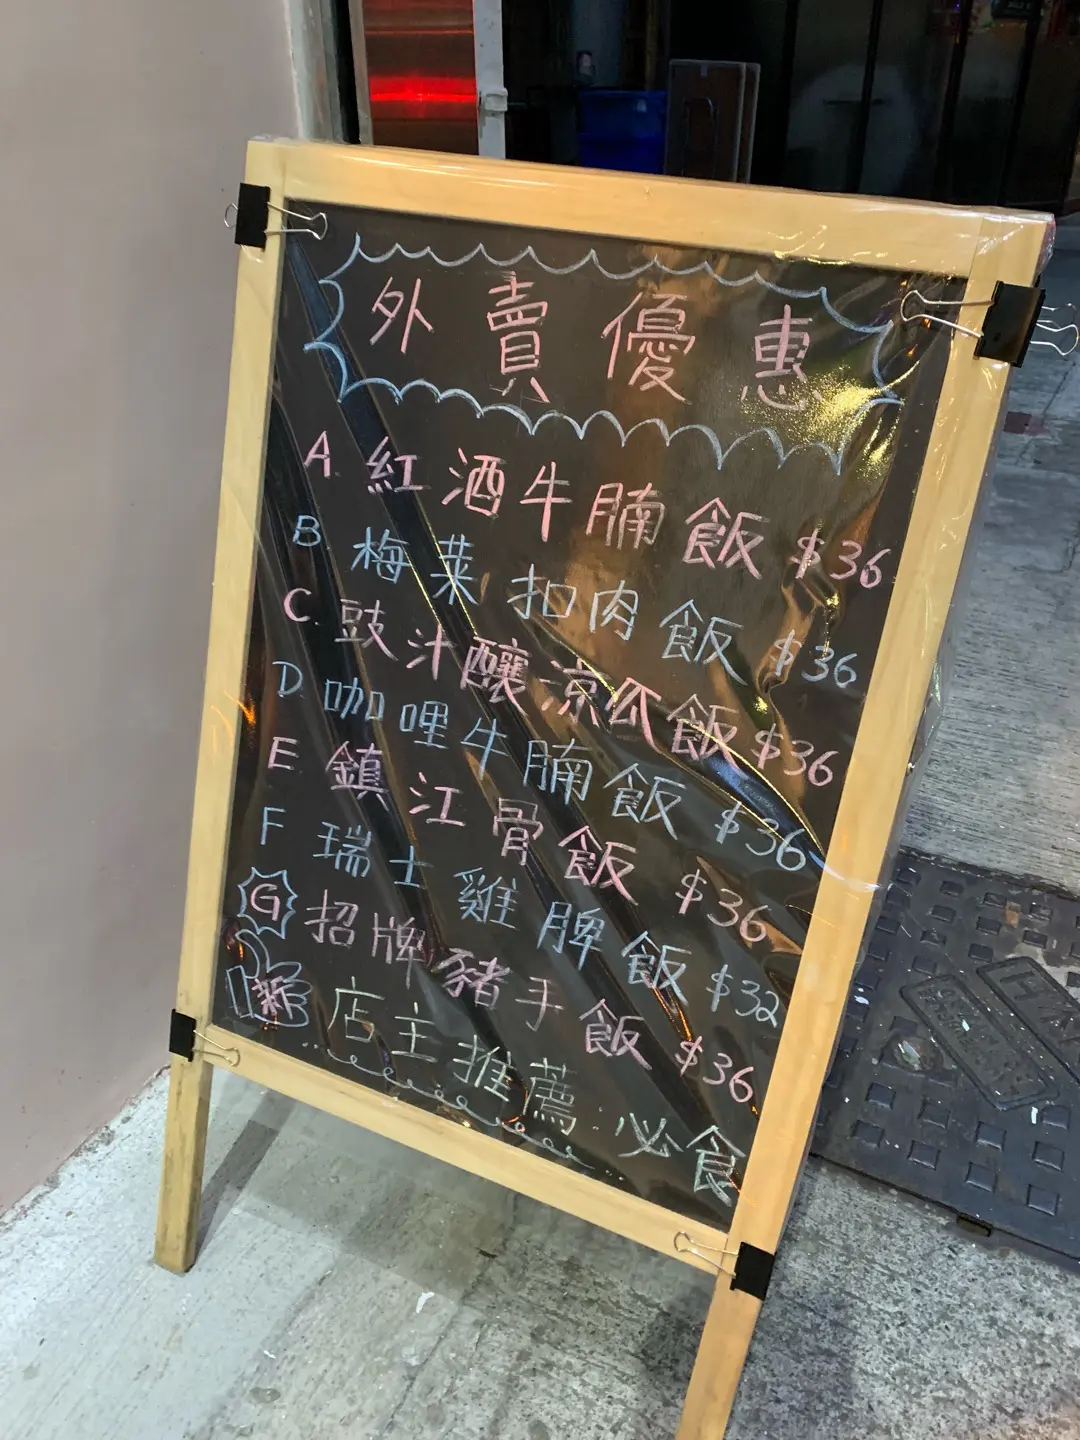 外賣優惠
A. 紅酒牛腩飯 $36
B 梅菜扣肉飯 $36
C. 豉汁釀涼瓜飯 $36
D 咖哩牛腩飯 $36
E 鎮江骨飯 $36
F 瑞士雞脾飯 $32
G 招牌豬手飯 $36
新 店主推薦..必食